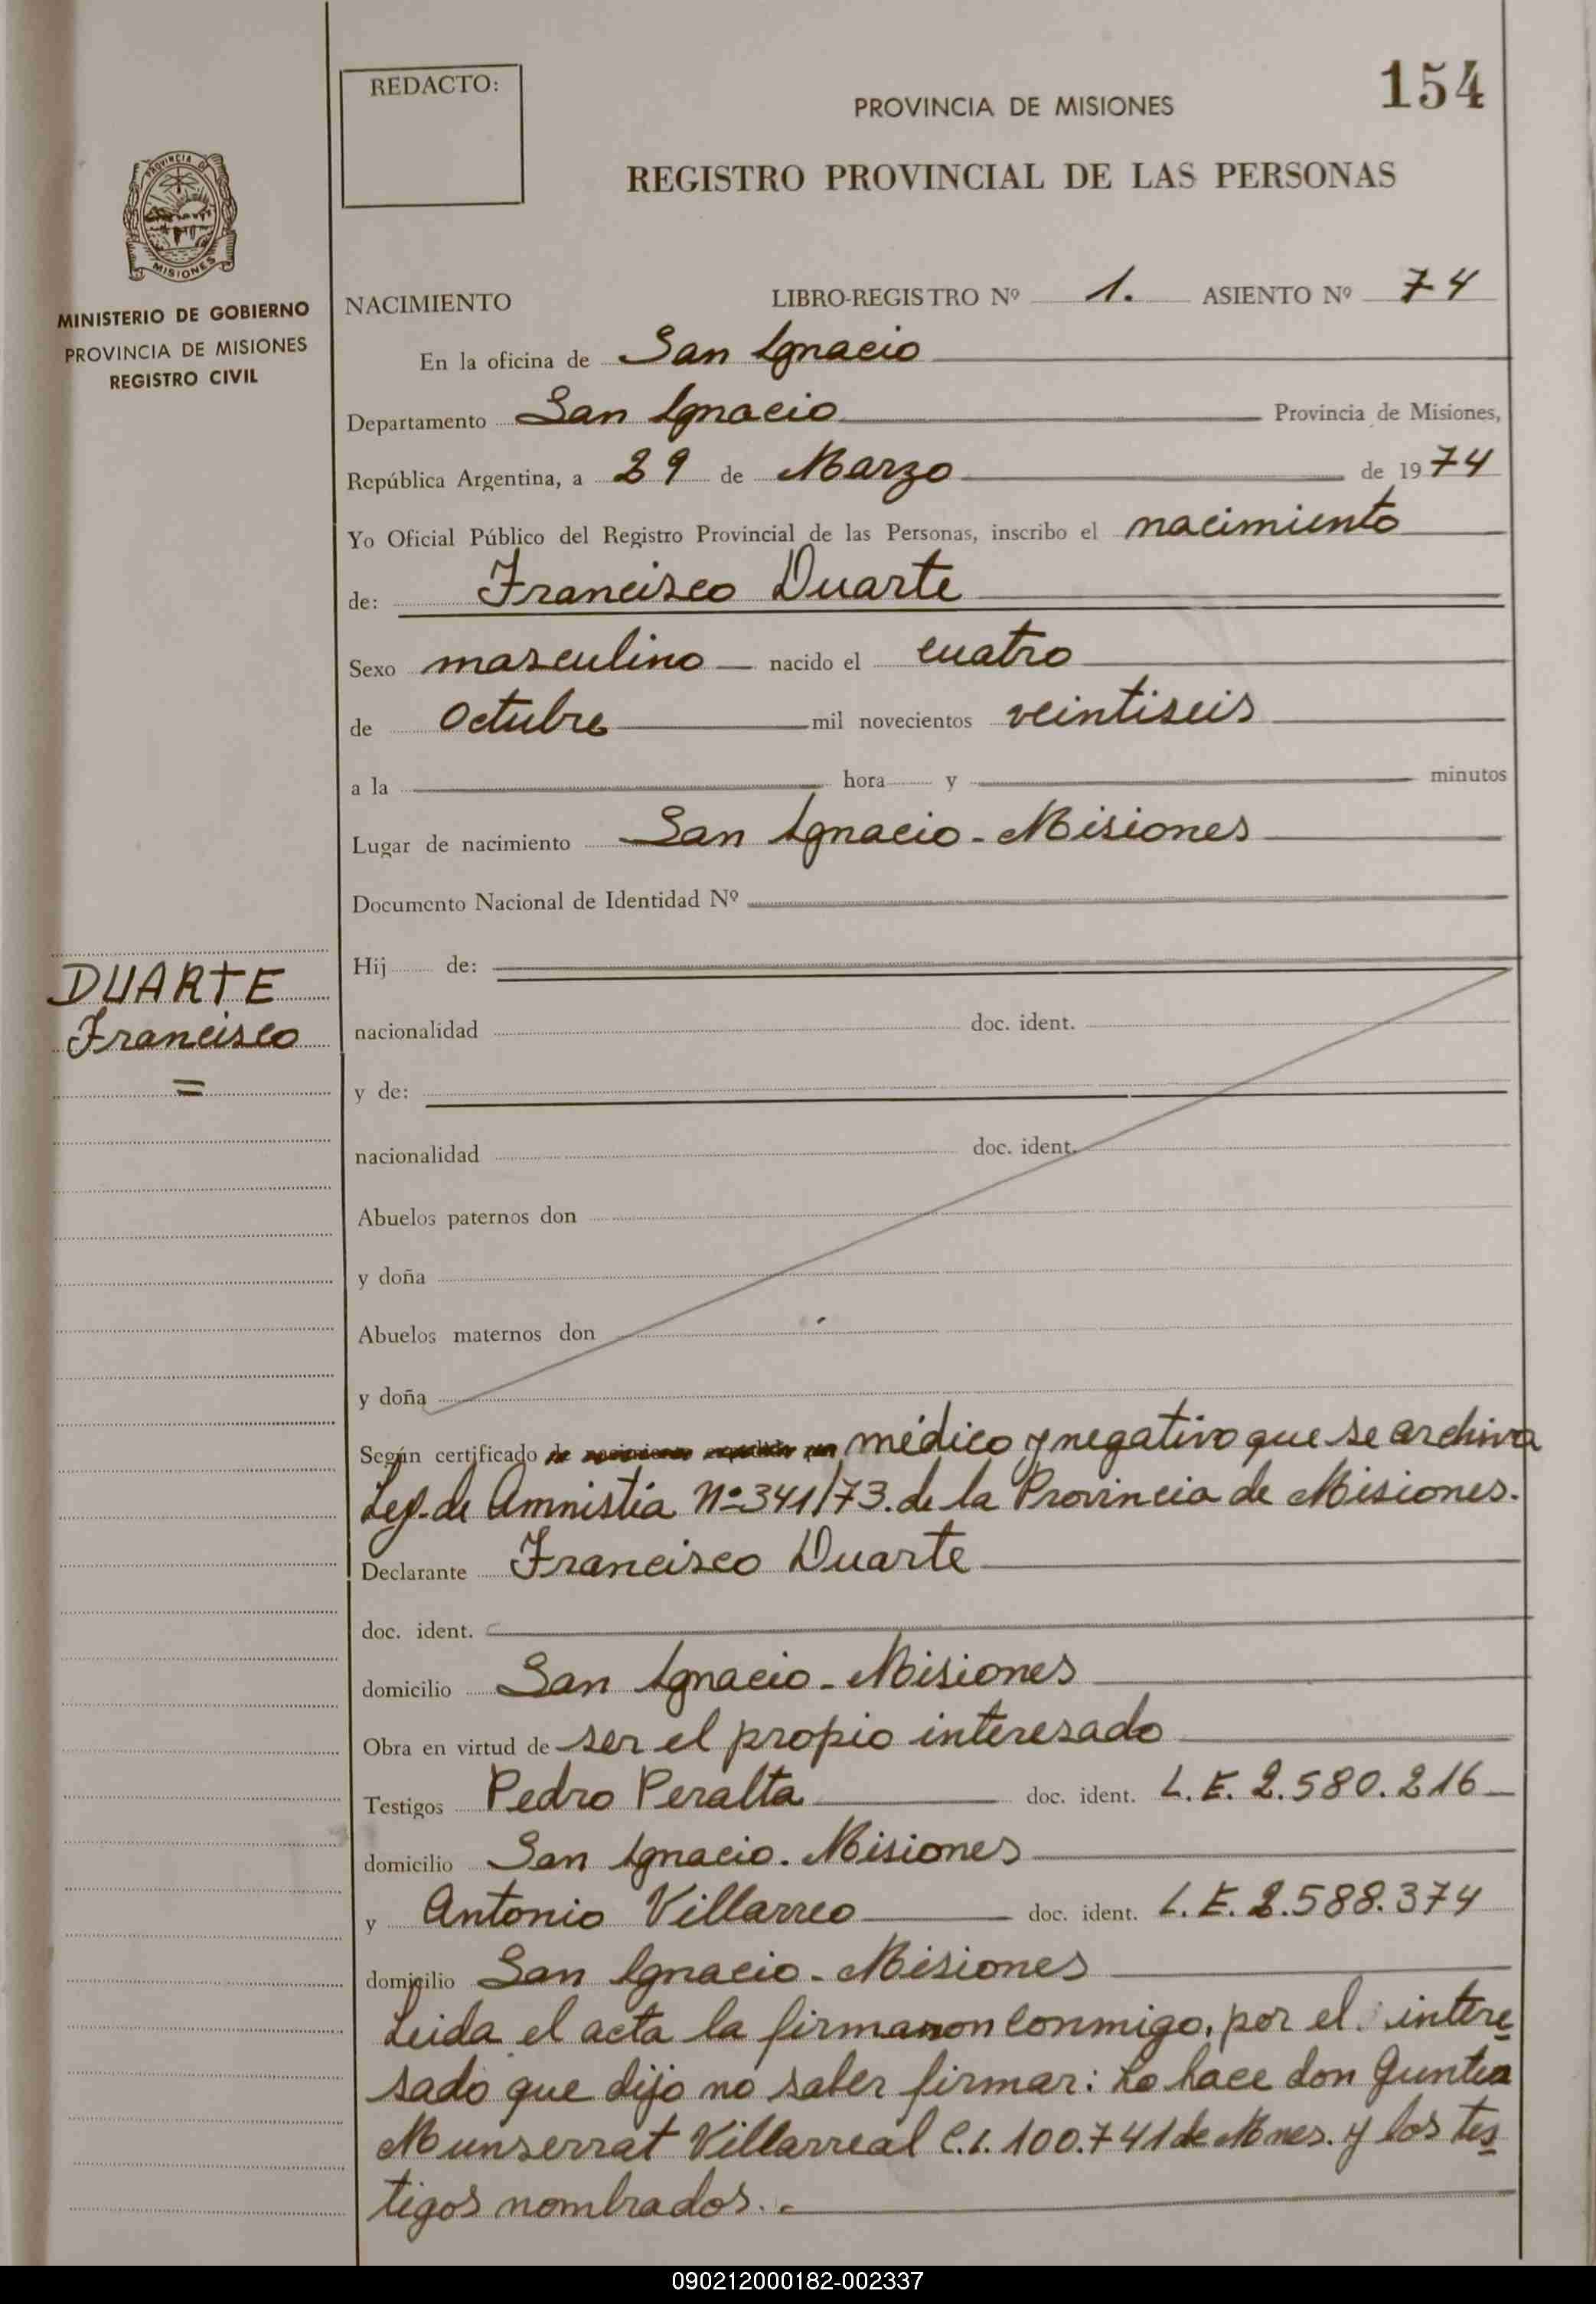 REDACTO:
154
PROVINCIA DE MISIONES
REGISTRO PROVINCIAL DE LAS PERSONAS
PROVINCIA DE
MISIONES
MINISTERIO DE GOBIERNO
PROVINCIA DE MISIONES
REGISTRO CIVIL
NACIMIENTO LIBRO-REGISTRO Nº 1. ASIENTO Nº 74
En la oficina de San Ignacio
Departamento San Ignacio Provincia de Misiones,
República Argentina, a 29 de Marzo de 1974
Yo Oficial Público del Registro Provincial de las Personas, inscribo el nacimiento
de: Francisco Duarte
Sexo masculino nacido el cuatro
de Octubre mil novecientos veintiseis
a la hora y minutos
Lugar de nacimiento San Ignacio - Misiones
Documento Nacional de Identidad Nº
DUARTE
Francisco
=
Hij de:
nacionalidad doc. ident.
y de:
nacionalidad doc. ident.
Abuelos paternos don
y doña
Abuelos maternos don
y doña
Según certificado médico y negativo que se archiva
Ley de Amnistia Nº 341/73. de la Provincia de Misiones.
Declarante Francisco Duarte
doc. ident.
domicilio San Ignacio - Misiones
Obra en virtud de ser el propio interesado
Testigos Pedro Peralta doc. ident. L.E. 2.580.216
domicilio San Ignacio. Misiones
y Antonio Villarreo doc. ident. L.E. 2.588.374
domicilio San Ignacio - Misiones
Leida el acta la firmaron conmigo, por el intere
sado que dijo no saber firmar: Lo hace don
Munserrat Villarreal C.I. 100.741 de Mnes. y los tes
tigos nombrados. -
090212000182-002337